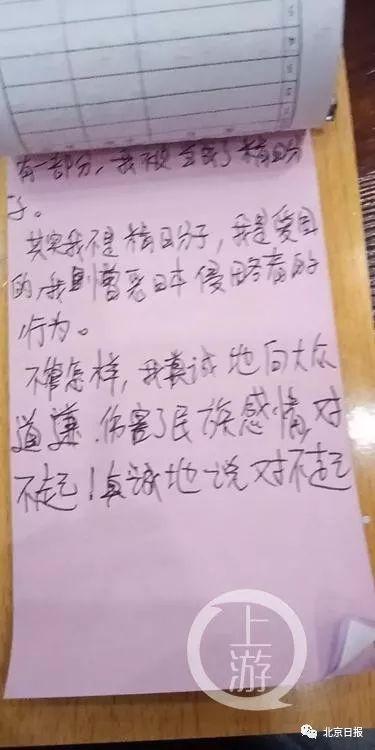 有一部分，我被当成了精日分
子。
其实我不是精日分子，我是爱国
的，我是憎恶日本侵略者的
行为。
不管怎样，我真诚地向大众
道歉，伤害了民族感情，对
不起！真诚地说对不起
上游
北京日报